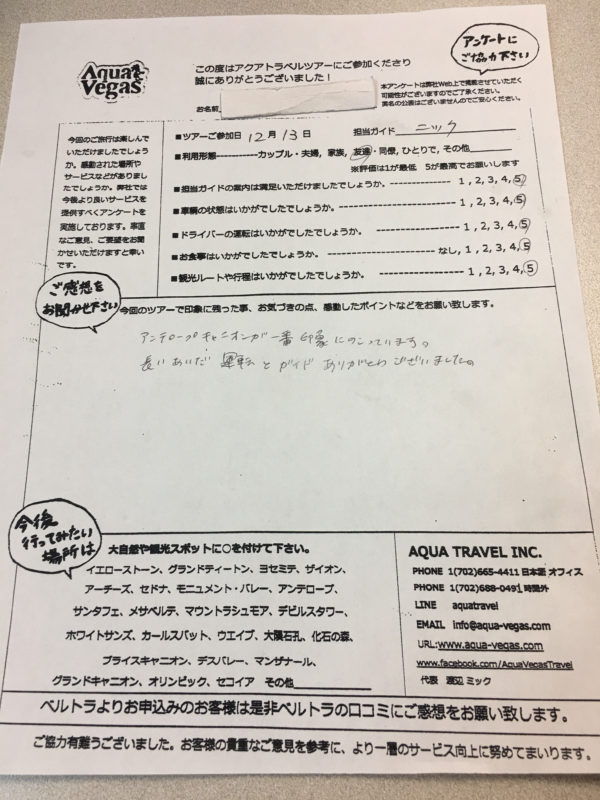 Aqua Vegas
この度はアクアトラベルツアーにご参加くださり
誠にありがとうございました！
アンケートに
ご協力下さい
本アンケートは弊社Web上で掲載させていただく
可能性がございますのでご了承ください。
実名の公表はございませんのでご安心ください。
お名前
今回のご旅行は楽しんで
いただけましたでしょう
か。感動された場所や
サービスなどがありまし
たでしょうか。弊社では
今後より良いサービスを
提供すべくアンケートを
実施しております。率直
なご意見、ご要望をお聞
かせいただけますと幸い
です。
■ツアーご参加日 12月13日 担当ガイド ニック
■利用形態------------カップル・夫婦, 家族, 友達・同僚, ひとりで, その他
※評価は1が最低 5が最高でお願いします
■担当ガイドの案内は満足いただけましたでしょうか。 1, 2, 3, 4, 5
■車輌の状態はいかがでしたでしょうか。 1, 2, 3, 4, 5
■ドライバーの運転はいかがでしたでしょうか。 1, 2, 3, 4, 5
■お食事はいかがでしたでしょうか。 なし, 1, 2, 3, 4, 5
■観光ルートや行程はいかがでしょうか。 1, 2, 3, 4, 5
ご感想を
お聞かせ下さい
今回のツアーで印象に残った事、お気づきの点、感動したポイントなどをお願い致します。
アンテロープキャニオンが一番印象にのこっています。
長いあいだ 運転とガイド ありがとうございました。
今後
行ってみたい
場所は
大自然や観光スポットに○を付けて下さい。
イエローストーン、グランドティートン、ヨセミテ、ザイオン、
アーチーズ、セドナ、モニュメント・バレー、アンテロープ、
サンタフェ、メサベルテ、マウントラシュモア、デビルスタワー、
ホワイトサンズ、カールスバット、ウエイブ、大隕石孔、化石の森、
ブライスキャニオン、デスバレー、マンザナール、
グランドキャニオン、オリンピック、セコイア その他
AQUA TRAVEL INC.
PHONE 1(702)665-4411 日本語 オフィス
PHONE 1(702)688-0491 時間外
LINE aquatravel
EMAIL info@aqua-vegas.com
URL:www.aqua-vegas.com
www.facebook.com/AquaVegasTravel
代表 渡辺 ミック
ベルトラよりお申込みのお客様は是非ベルトラの口コミにご感想をお願い致します。
ご協力有難うございました。お客様の貴重なご意見を参考に、より一層のサービス向上に努めてまいります。